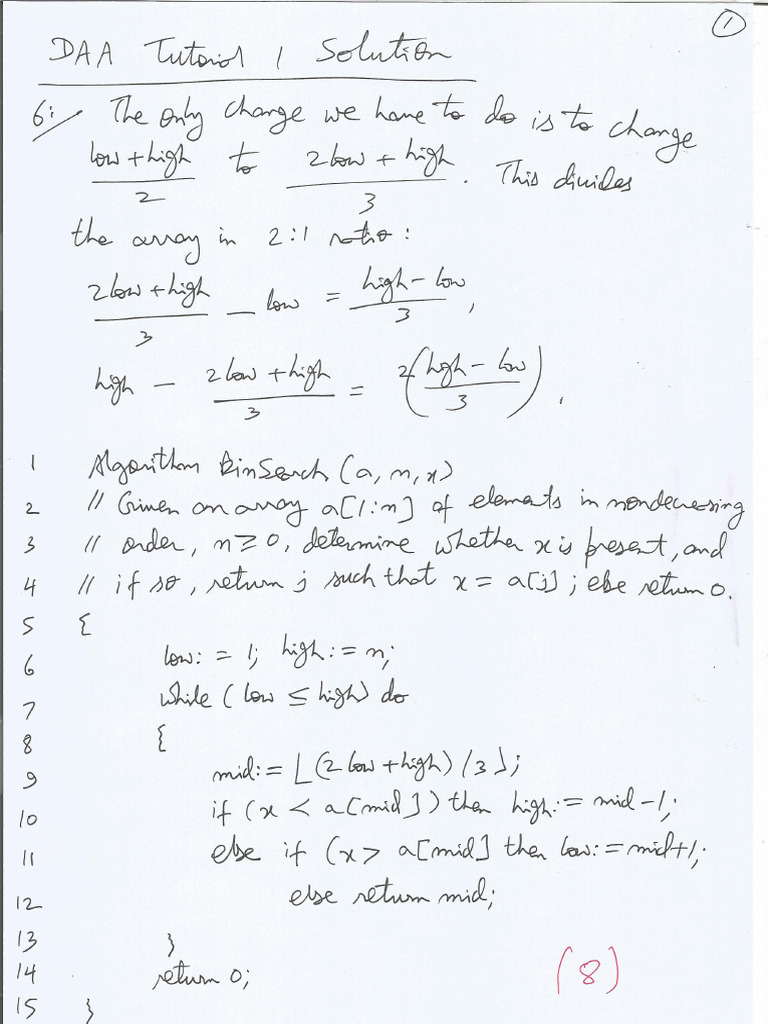 1
DAA Tutorial 1 Solution
6: The only change we have to do is to change
(low + high)/2 to (2low + high)/3. This divides
the array in 2:1 ratio:
(2low + high)/3 – low = (high – low)/3,
high – (2low + high)/3 = 2((high – low)/3).
1 Algorithm BinSearch (a, n, x)
2 // Given an array a[1:n] of elements in nondecreasing
3 // order, n ≥ 0, determine whether x is present, and
4 // if so, return j such that x = a[j]; else return 0.
5 {
6 low: = 1; high: = n;
7 while (low ≤ high) do
8 {
9 mid: = ⌊(2low + high)/3⌋;
10 if (x < a[mid]) then high: = mid-1;
11 else if (x > a[mid] then low: = mid+1;
12 else return mid;
13 }
14 return 0; (8)
15 }